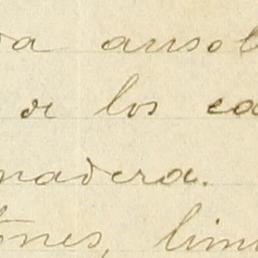 da ansol
a los ca
madera.
tones, lim